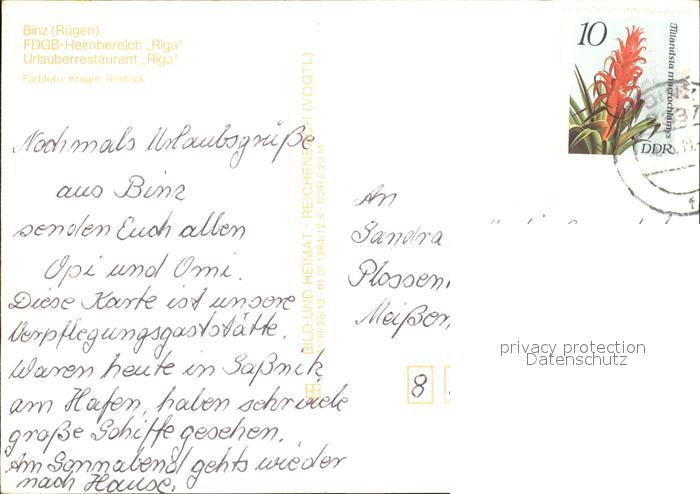 Binz (Rügen)
FDGB-Heimbereich „Riga“
Urlauberrestaurant „Riga“
Farbfoto: Krüger, Rostock
Nochmals Urlaubsgrüße
aus Binz
senden Euch allen
Opi und Omi.
Diese Karte ist unsere
Verpflegungsgaststätte.
Waren heute in Saßnitz
am Hafen, haben sehr viele
große Schiffe gesehen.
Am Sonnabend gehts wieder
nach Hause.
BILD UND HEIMAT · REICHENBACH (VOGTL)
01 01 1364/12 K · DDR 0,20 M
10
Tillandsia macrochlamys
DDR
An
Sandra
Meißen
8
privacy protection
Datenschutz